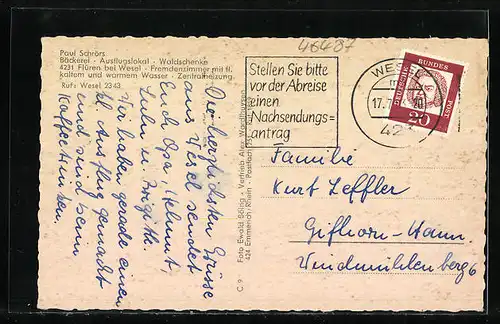 46487
Paul Schrörs
Bäckerei - Ausflugslokal - Waldschenke
4231 Flüren bei Wesel - Fremdenzimmer mit fl.
kaltem und warmem Wasser - Zentralheizung
Ruf: Wesel 2343
Die herzlichsten Grüsse
aus Wesel sendet
Euch Opa, Helmut,
u. Brigitte
Wir haben gerade einen
kl. Ausflug gemacht
und sind zum
Kaffeetrinken
C 9
Foto Ewald Böltig - Vertrieb Alex
424 Emmerich/Rhein - Postfach
Stellen Sie bitte
vor der Abreise
einen
Nachsendungs=
antrag
WESEL
17.7.
423
DEUTSCHE
BUNDES
POST
20
Familie
Kurt Leffler
Gifhorn-Hann.
Windmühlenberg 6